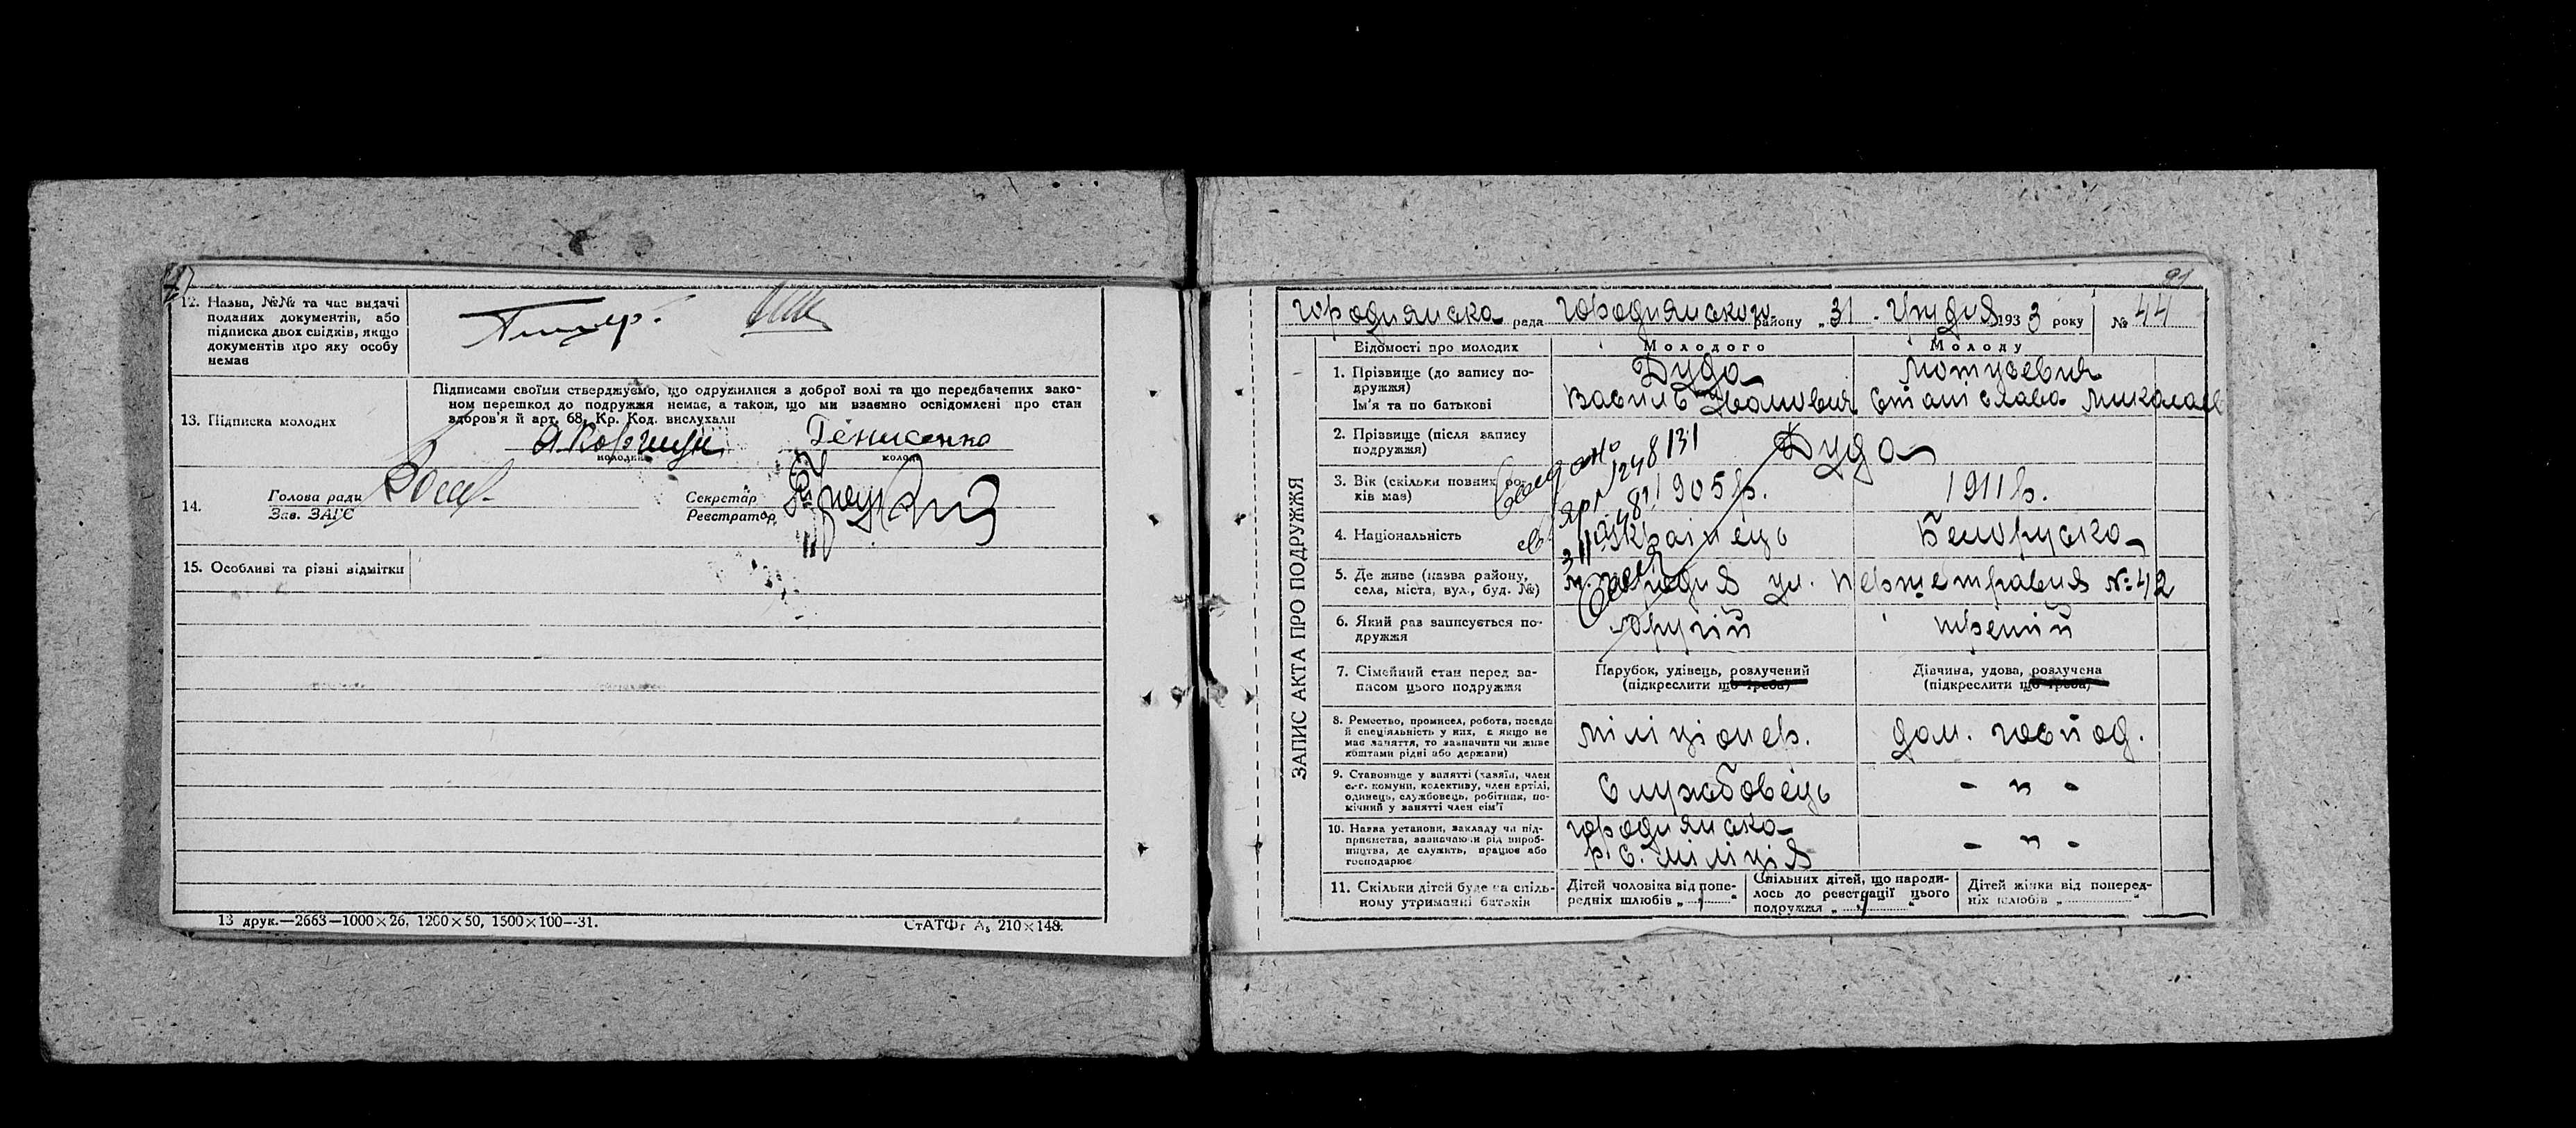 12. Назва, №№ та час видачі
поданих документів, або
підписка двох свідків, якщо
документів про яку особу
немає
13. Підписка молодих
Підписами своїми стверджуємо, що одружилися з доброї волі та що передбачених зако-
ном перешкод до подружжя немає, а також, що ми взаємно освідомлені про стан
здоров'я й арт. 68, Кр. Код. вислухали
Денисенко
14.
Голова ради
Зав. ЗАГС
Секретар
Реєстратор
15. Особливі та різні відмітки
13 друк.—2663—1000×26, 1200×50, 1500×100—31.
СтАТФг А₅ 210×148.
91
Городнянска рада Городнянського району „31 Грудня 1933 року № 44
ЗАПИС АКТА ПРО ПОДРУЖЖЯ
Відомості про молодих
Молодого
Молоду
1. Прізвище (до запису по-
дружжя)
Ім'я та по батькові
Дуда
Василь Іванович
Мотусевич
Станіслава Миколаєв
2. Прізвище (після запису
подружжя)
Дуда
3. Вік (скільки повних ро-
ків має)
1905 р.
1911 р.
4. Національність
Українець
Белоруска
5. Де живе (назва району,
села, міста, вул., буд. №)
м. Городня ул. Першетравня № 42
6. Який раз записується по-
дружжя
другій
третій
7. Сімейний стан перед за-
писом цього подружжя
Парубок, удівець, розлучений
(підкреслити що треба)
Дівчина, удова, розлучена
(підкреслити що треба)
8. Ремество, промисел, робота, посада
й спеціяльність у них, а якщо не
має заняття, то зазначити чи живе
коштами рідні або держави)
міліціонер.
дом. господ.
9. Становище у занятті (хазяїн, член
с.-г. комуни, колективу, член артілі,
одинець, службовець, робітник, по-
мічний у занятті член сім'ї
Службовець
- " -
10. Назва установи, закладу чи під-
приємства, зазначаючи рід вироб-
ництва, де служить, працює або
господарює
Городнянска
р. С. міліція
- " -
11. Скільки дітей буде на спіль-
ному утриманні батьків
Дітей чоловіка від попе-
редніх шлюбів „ "
Спільних дітей, що народи-
лось до реєстрації цього
подружжя „ "
Дітей жінки від поперед-
ніх шлюбів „ "